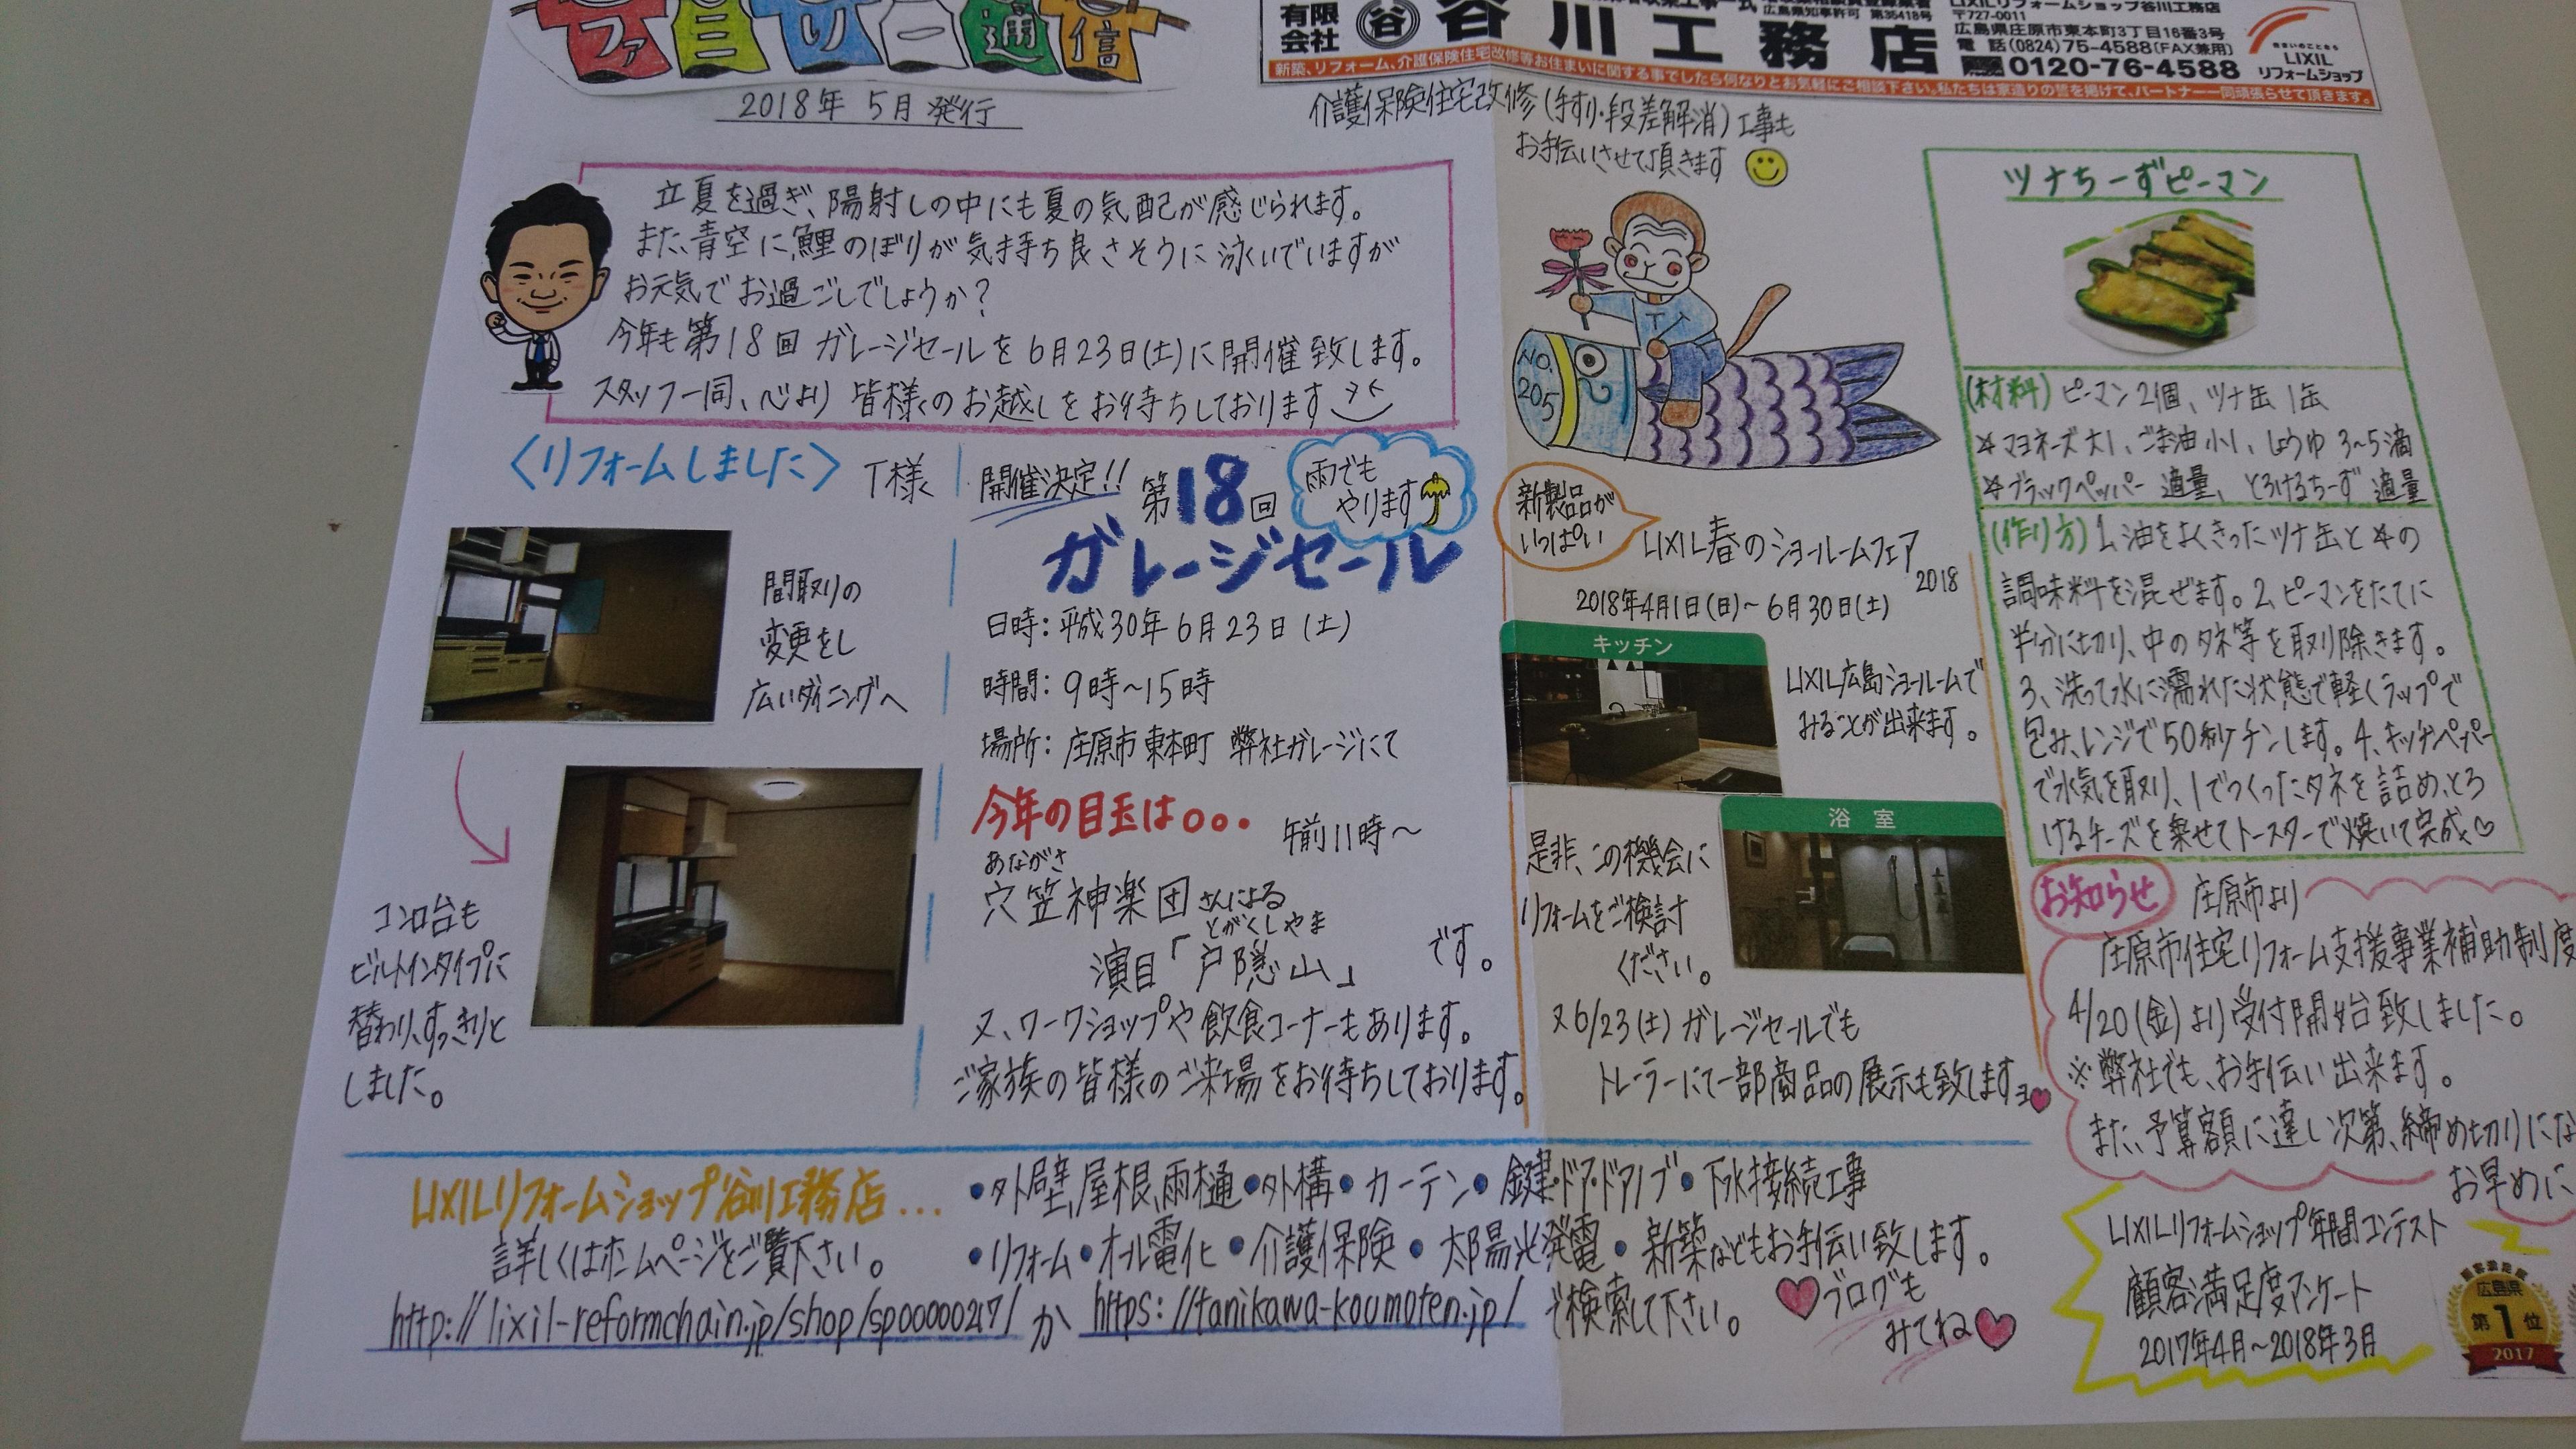 ファミリー通信
2018年 5月 発行
有限会社 谷 谷川工務店
広島県知事許可 第35418号
LIXILリフォームショップ谷川工務店
〒727-0011
広島県庄原市東本町3丁目16番3号
電 話(0824)75-4588(FAX兼用)
0120-76-4588
LIXIL
リフォームショップ
新築、リフォーム、介護保険住宅改修等お住まいに関する事でしたら何なりとお気軽にご相談下さい。私たちは家造りの誓を掲げて、パートナー一同頑張らせて頂きます。
介護保険住宅改修(手すり・段差解消)工事も
お手伝いさせて頂きます
立夏を過ぎ、陽射しの中にも夏の気配が感じられます。
また、青空に鯉のぼりが気持ち良さそうに泳いでいますが
お元気でお過ごしでしょうか?
今年も第18回ガレージセールを6月23日(土)に開催致します。
スタッフ一同、心より皆様のお越しをお待ちしております
〈リフォームしました〉 T様
間取りの
変更をし
広いダイニングへ
コンロ台も
ビルトインタイプに
替わり、すっきりと
しました。
開催決定!! 第18回
雨でも
やります
ガレージセール
日時:平成30年6月23日(土)
時間:9時〜15時
場所:庄原市東本町 弊社ガレージにて
今年の目玉は○○。 午前11時〜
あながさ
穴笠神楽団さんによる
とがくしやま
演目「戸隠山」 です。
又、ワークショップや飲食コーナーもあります。
ご家族の皆様のご来場をお待ちしております。
NO.
205
新製品が
いっぱい
LIXIL春のショールームフェア
2018
2018年4月1日(日)〜6月30日(土)
キッチン
LIXIL広島ショールームで
みることが出来ます。
浴 室
是非、この機会に
リフォームをご検討
ください。
又6/23(土)ガレージセールでも
トレーラーにて一部商品の展示も致しますョ
ツナちーずピーマン
(材料)ピーマン2個、ツナ缶1缶
☆マヨネーズ大1、ごま油小1、しょうゆ3〜5滴
☆ブラックペッパー 適量、とろけるちーず 適量
(作り方)1、油をよくきったツナ缶と☆の
調味料を混ぜます。2、ピーマンをたてに
半分に切り、中のタネ等を取り除きます。
3、洗って水に濡れた状態で軽くラップで
包み、レンジで50秒チンします。4、キッチンペーパー
で水気を取り、1でつくったタネを詰め、とろ
けるチーズを乗せてトースターで焼いて完成♡
お知らせ 庄原市より
庄原市住宅リフォーム支援事業補助制度
4/20(金)より受付開始致しました。
※弊社でも、お手伝い出来ます。
また、予算額に達し次第、締め切りにな
お早めに
LIXILリフォームショップ谷川工務店...
詳しくはホームページをご覧下さい。
●外壁,屋根,雨樋●外構●カーテン●鍵・ドア・ドアノブ●下水接続工事
●リフォーム●オール電化●介護保険●太陽光発電●新築などもお手伝い致します。
http://lixil-reformchain.jp/shop/sp00000217/ か https://tanikawa-koumoten.jp/ で検索して下さい。
ブログも
みてね
LIXILリフォームショップ年間コンテスト
顧客満足度アンケート
2017年4月〜2018年3月
広島県
第1位
2017